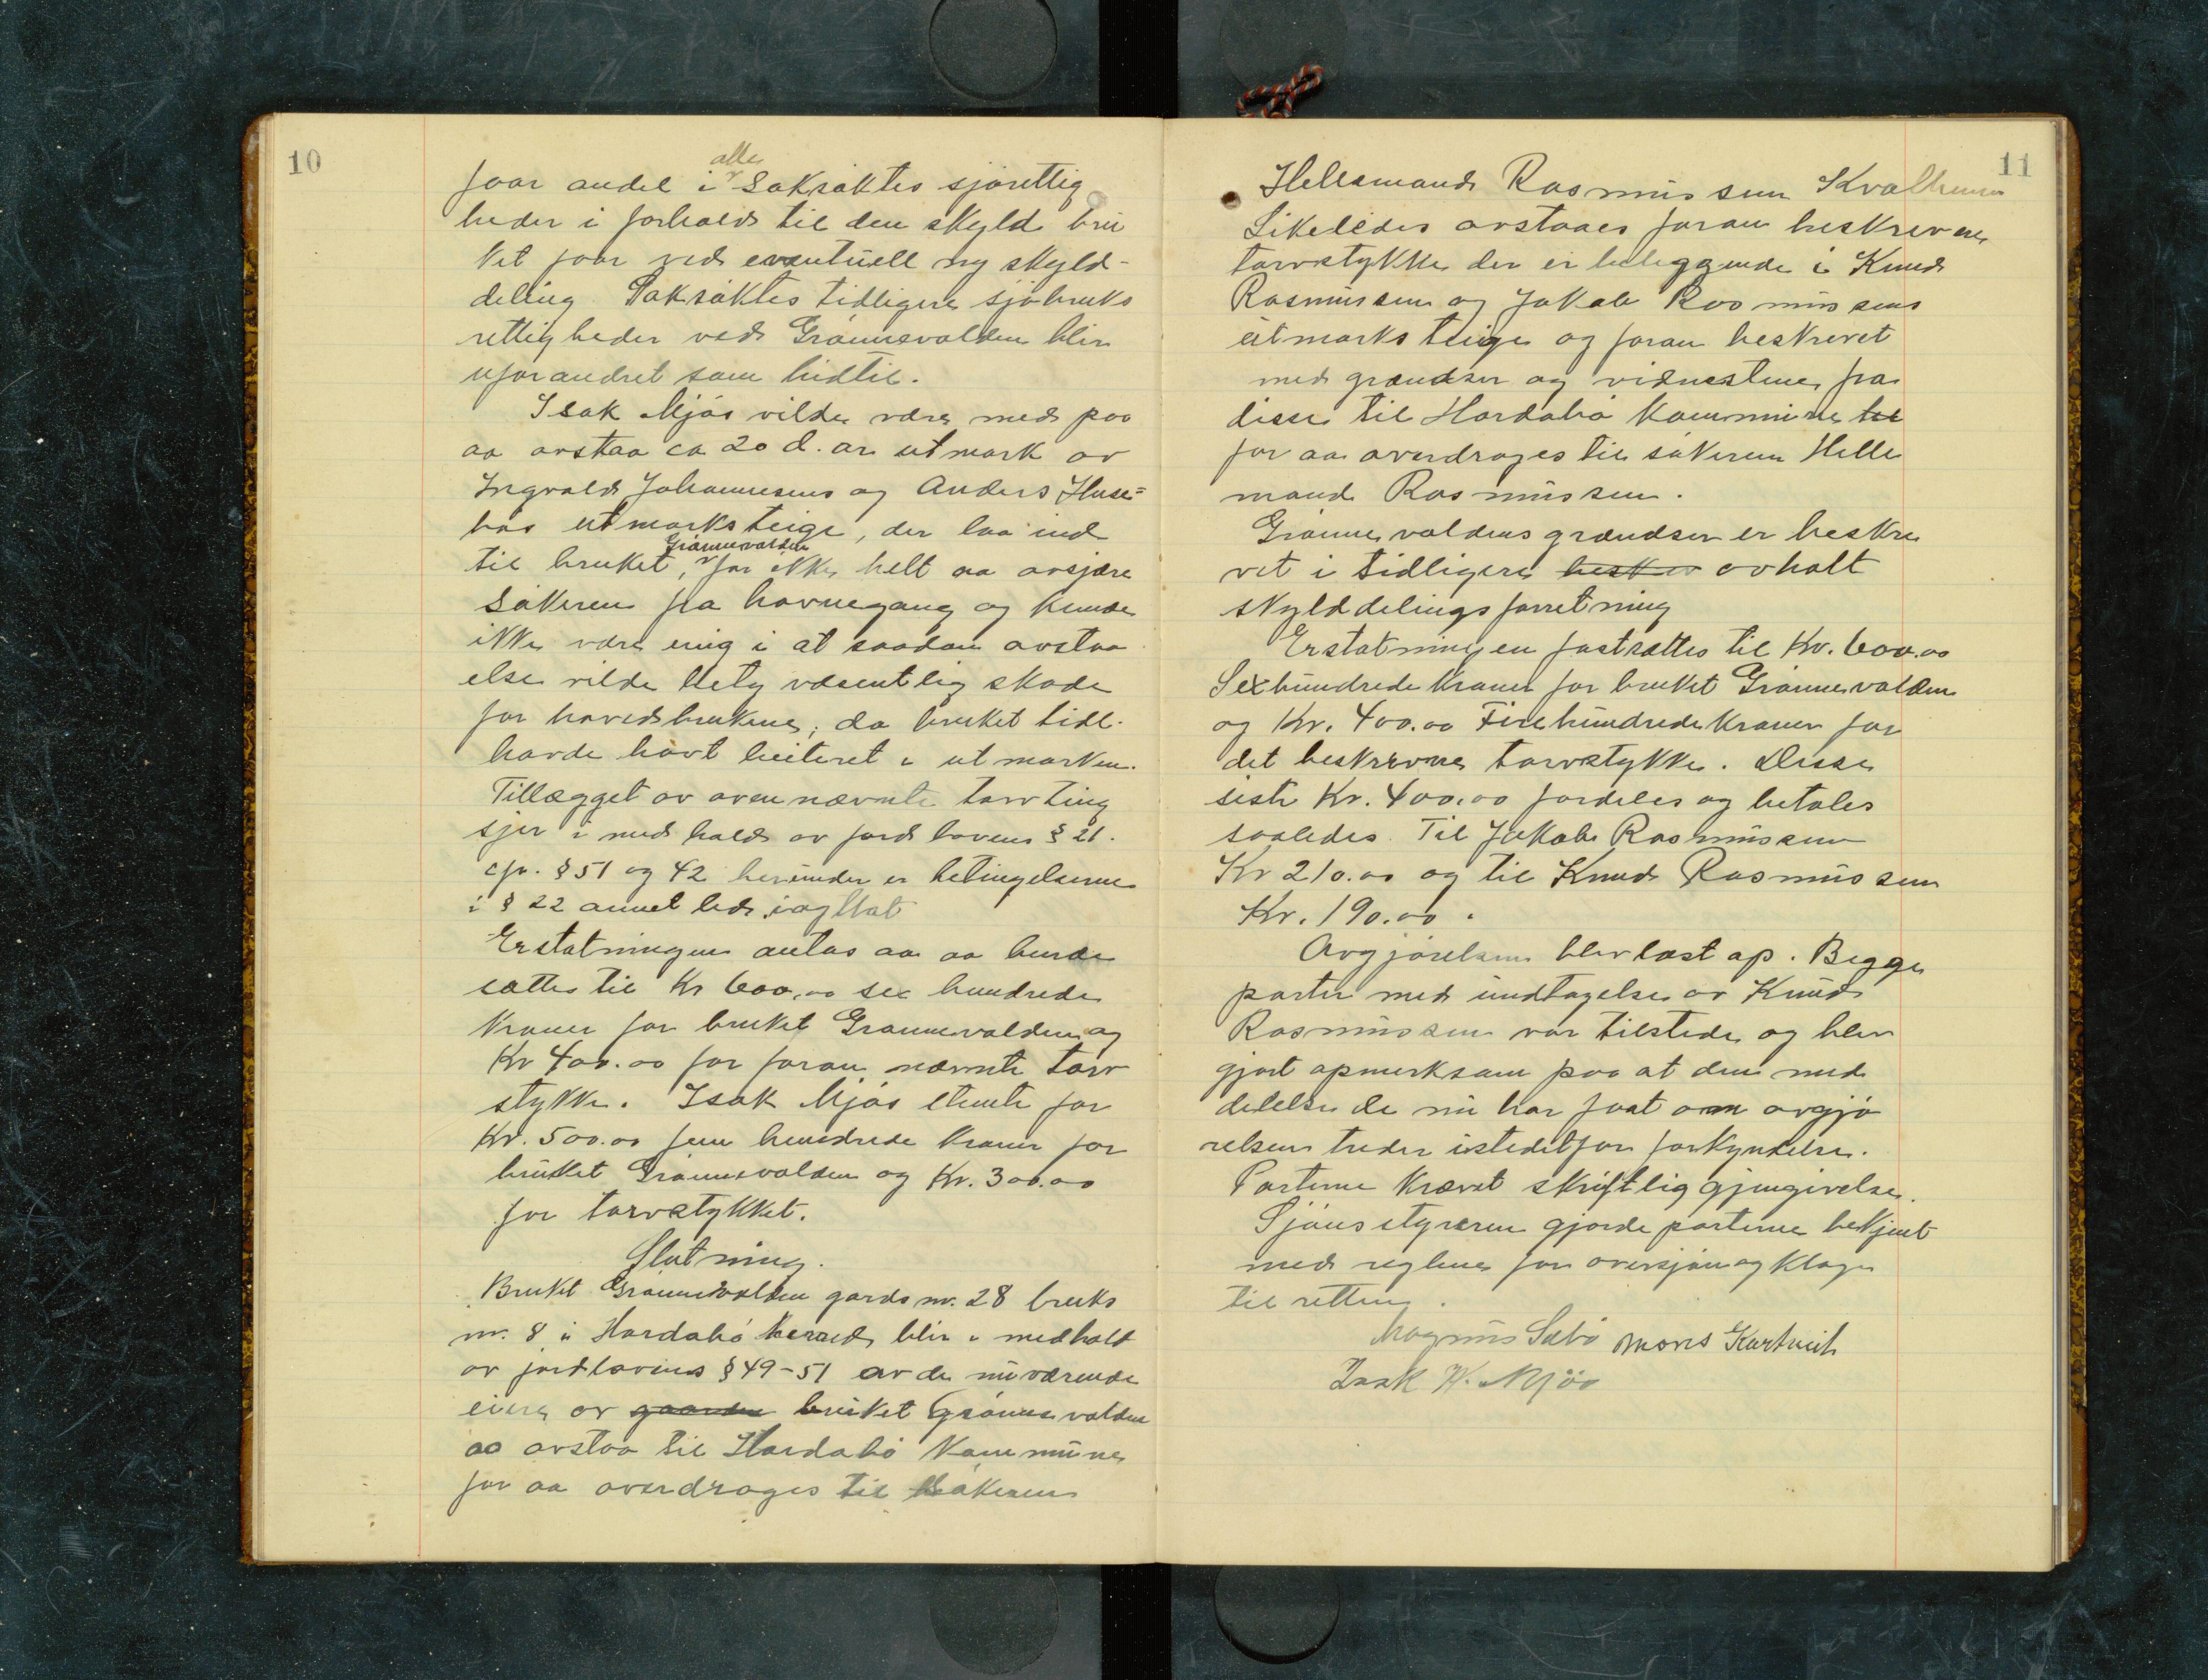 10
alle
faar andel i Saksøktes sjørettig
heder i forhold til den skyld bru
ket faar ved eventuell ny skyld-
deling. Saksøktes tidligere sjøbruks
rettigheder ved Grønnevolden blir
uforandret som hidtil.
Isak Mjøs vilde være med paa
aa avstaa ca 20 d. ar utmark av
Ingvald Johannesens og Anders Huse=
bøs utmarksteige, der laa ind
Grønnevolden
til bruket, for ikke helt aa avsjære
søkeren fra havnegang og kunde
ikke være enig i at saadan avstaa
else vilde bety væsentlig skade
for hovedsbrukene, da bruket tidl.
havde havt beiteret i utmarken.
Tillægget av ovennævnte torvteig
sjer i medhold av jordlovens § 21.
cfr. § 51 og 42 herunder er betingelserne
i § 22 annet led iagttat
Erstatningen antas aa aa burde
sættes til Kr 600,00 sex hundrede
Kroner for bruket Grønnevolden og
Kr 400.00 for foran nævnte torv
stykke. Isak Mjøs stemte for
Kr. 500.00 fem hundrede Kroner for
bruket Grønnevolden og Kr. 300.00
for torvstykket.
Slutning.
Bruket Grønnevolden gards nr. 28 bruks
nr. 8 i Hordabø herred, blir i medhold
av jordlovens § 49-51 av de nuværende
eiere av gaarden bruket Grønnevolden
aa avstaa til Hordabø Kommune
for aa overdrages til Søkeren
11
Hellemand Rasmussen Kvalheim
Likeledes avstaaes foran beskrevne
torvstykke der er beliggende i Knud
Rasmussen og Jakob Rasmussens
utmarksteige og foran beskrevet
med grændser og vidnestene, fra
disse til Hordabø Kommune til
for aa overdrages til søkeren Helle
mand Rasmussen.
Grønnevoldens grændser er beskre
vet i tidligere beskrev avholt
skylddelingsforretning
Erstatningen fastsættes til Kr. 600.00
Sexhundrede Kroner for bruket Grønnevolden
og Kr. 400.00 Firehundrede Kroner for
det beskrevne torvstykke. Disse
siste Kr. 400.00 fordeles og betales
saaledes. Til Jakob Rasmussen
Kr 210.00 og til Knud Rasmussen
Kr. 190.00.
Avgjørelsen blev læst op. Begge
parter med undtagelse av Knud
Rasmussen var tilstede og blev
gjort opmerksam paa at den med
delelse de nu har faat om avgjø
relsen træder istedetfor forkyndelse.
Parterne krævet skriftlig gjengivelse.
Sjønsstyreren gjorde parterne bekjent
med reglene for oversjøn og klage
til retten.
Magnus Sæbø Mons Kartveit
Isak H. Mjøs